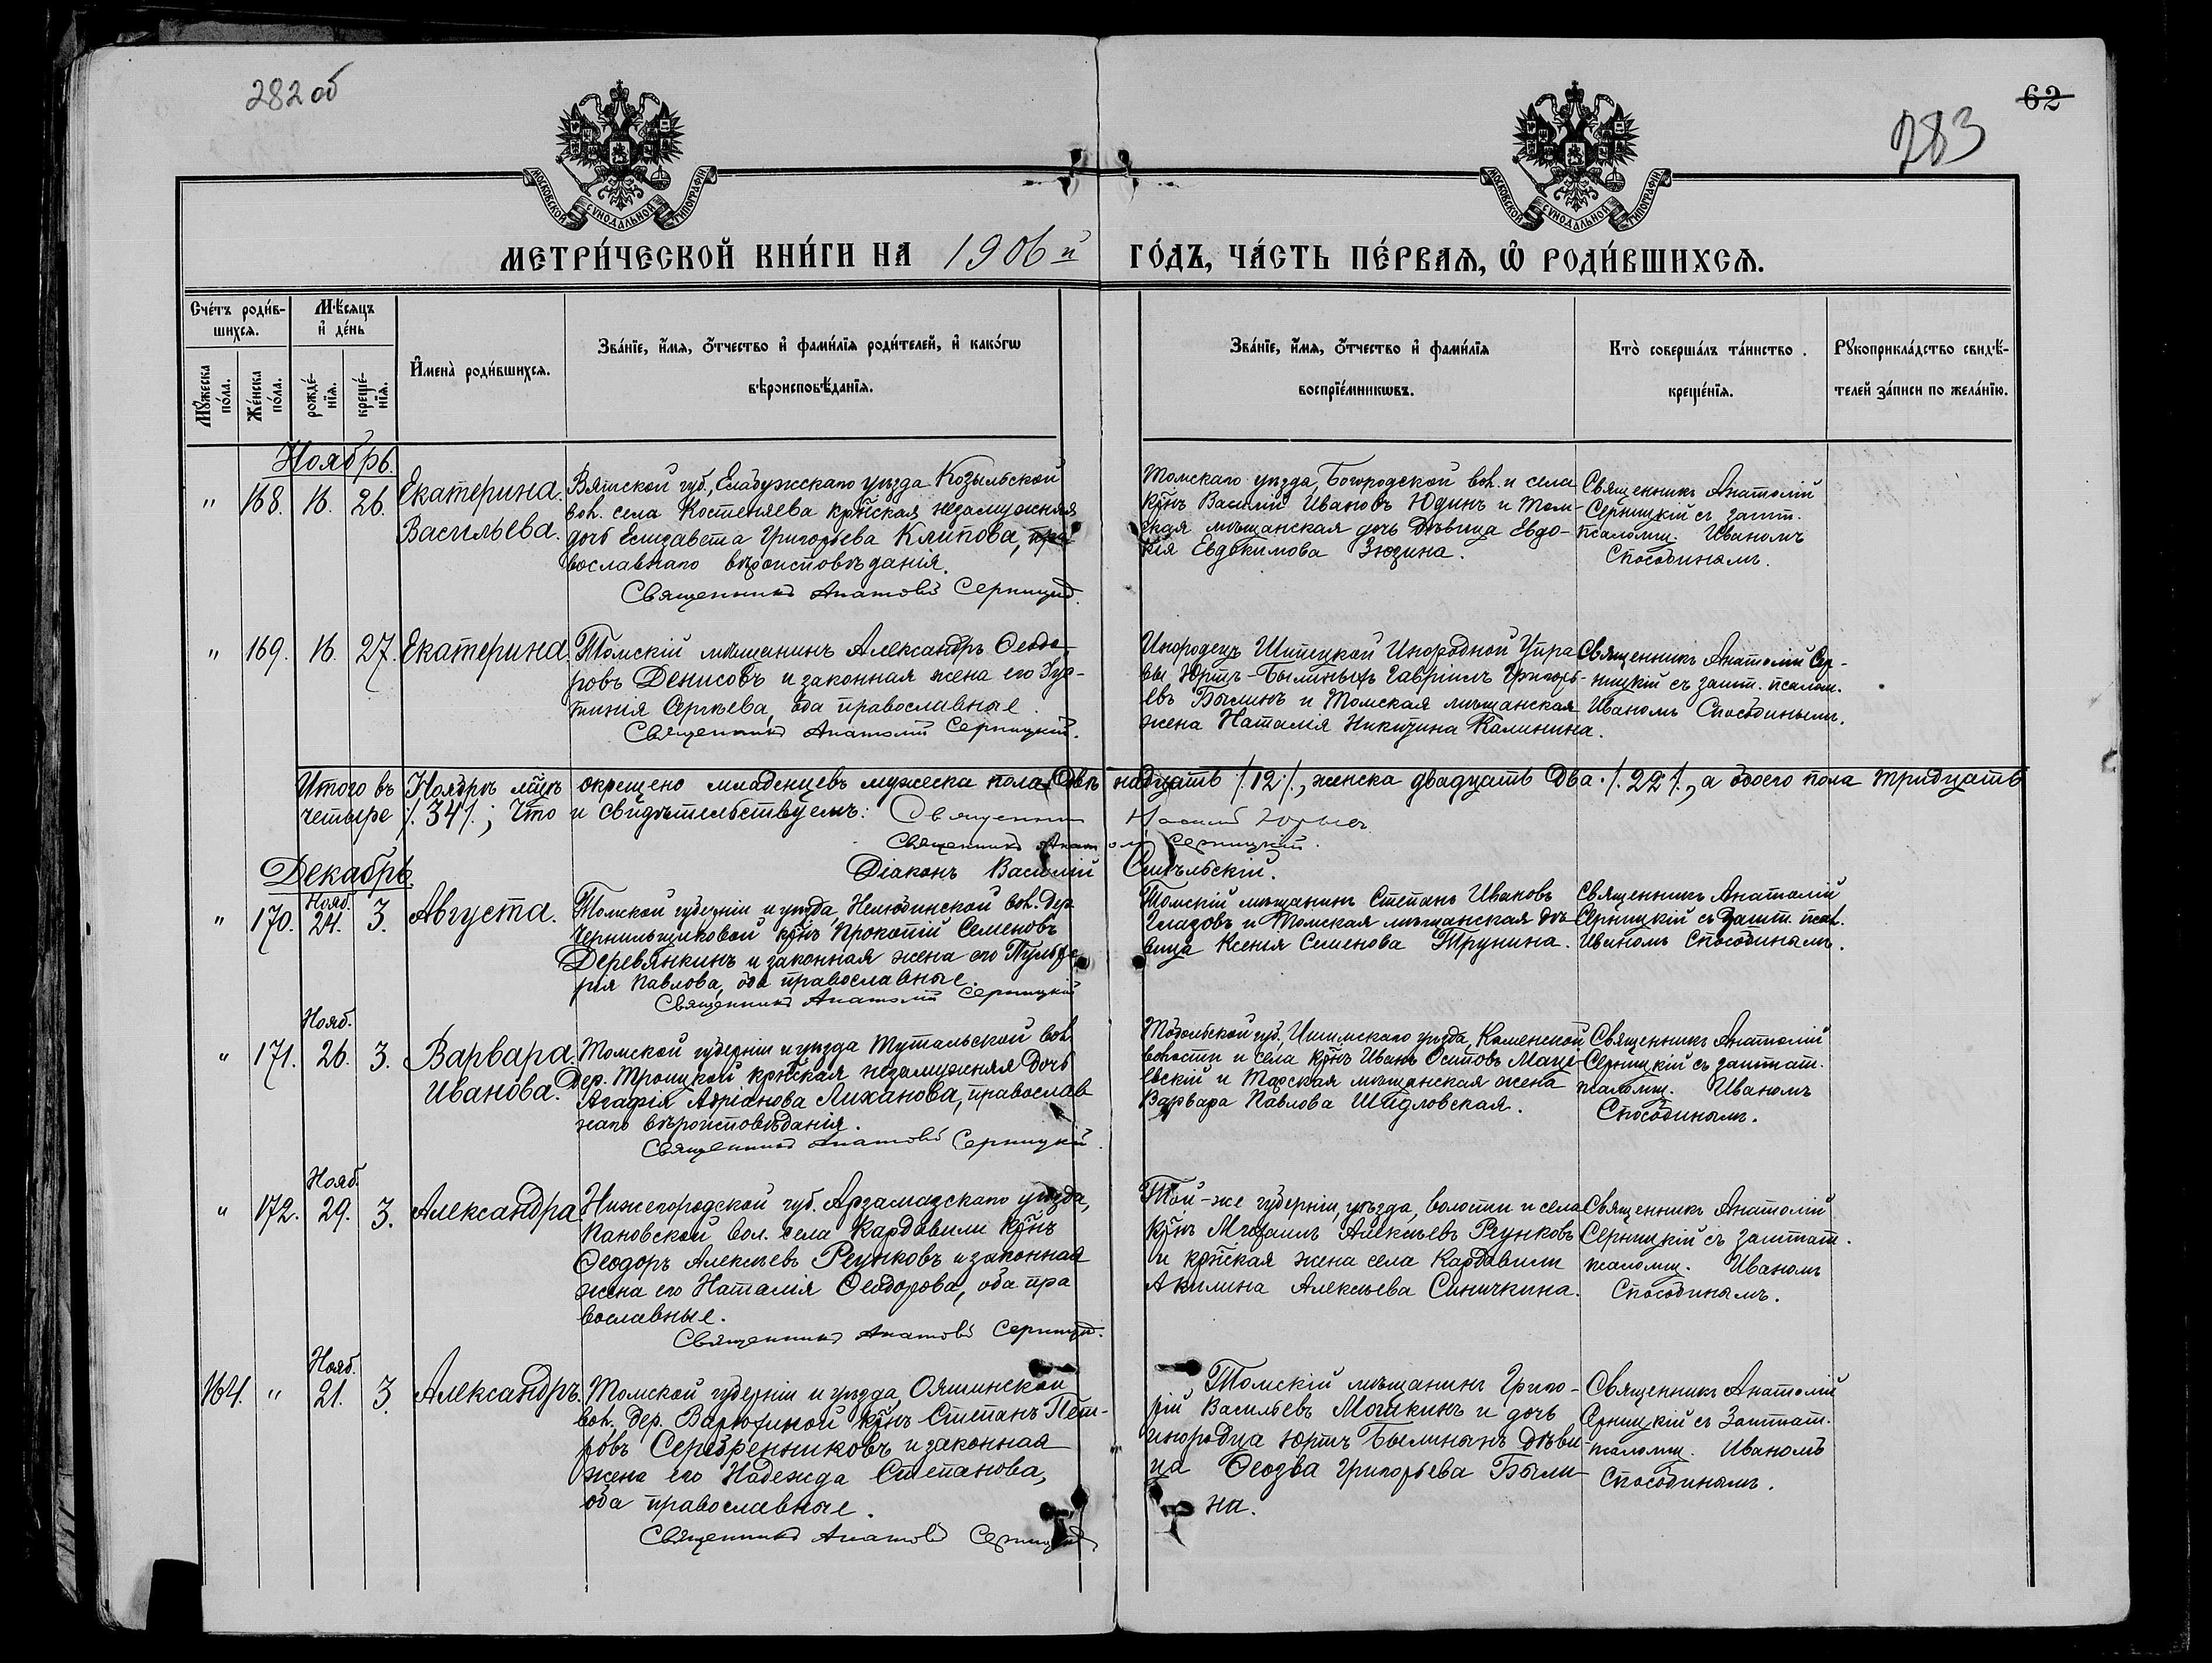 282 об
62
283
МОСКОВСКОЙ СѴНОДАЛЬНОЙ ТИПОГРАФІИ
МОСКОВСКОЙ СѴНОДАЛЬНОЙ ТИПОГРАФІИ
МЕТРИ́ЧЕСКОЙ КНИ́ГИ НА 1906й ГО́ДЪ, ЧА́СТЬ ПЕ́РВАѦ, Ѡ҆ РОДИ́ВШИХСѦ.
Сче́тъ роди́в-
шихсѧ.
Мѣ́сѧцъ
и҆ де́нь
Мꙋ́жеска
по́ла.
Же́нска
по́ла.
рожде́-
нїѧ.
креще́-
нїѧ.
И҆мена̀ роди́вшихсѧ.
Зва́нїе, и҆́мѧ, ѻ҆́тчество и҆ фами́лїѧ роди́телей, и҆ како́гѡ
вѣроисповѣ́данїѧ.
Зва́нїе, и҆́мѧ, ѻ҆́тчество и҆ фами́лїѧ
воспрїе́мникѡвъ.
Кто̀ соверша́лъ та́инство
креще́нїѧ.
Рꙋкоприкла́дство свидѣ́-
телей за́писи по жела́нїю.
Ноябрь.
" 168. 16. 26. Екатерина
Васильева.
Вятской губ., Елабужскаго уѣзда Козыльской
вол. села Костенѣева крн҃ская незамужняя
дочь Елизавета Григорьева Клипова, пра-
вославнаго вѣроисповѣданія.
Священникъ Анатолій Серницкій
Томскаго уѣзда, Богородской вол. и села
крн҃ъ Василій Ивановъ Юдинъ и Том-
ская мѣщанская дочь дѣвица Евдо-
кія Евдокимова Зюзина.
Священникъ Анатолій
Серницкій съ зашт.
псаломщ. Иваномъ
Способинымъ.
" 169. 16. 27. Екатерина.
Томскій мѣщанинъ Александръ Ѳеодо-
ровъ Денисовъ и законная жена его Іус-
тинія Сергѣева, оба православные.
Священникъ Анатолій Серницкій.
Инородецъ Шепецкой Инородной Упра-
вы Юртъ-Былиныхъ Гавріилъ Григорь-
евъ Былинъ и Томская мѣщанская
жена Наталія Никитина Калинина.
Священникъ Анатолій Сер-
ницкій съ зашт. псалом.
Иваномъ Способинымъ.
Итого въ Ноябрѣ мц҃ѣ окрещено младенцевъ мужеска пола Двѣнадцать /.12./, женска двадцать два ./.22./., а обоего пола тридцать
четыре /.34./.; Что и свидѣтельствуемъ: Священникъ
Священникъ Анатолій Серницкій.
Діаконъ Василій
Декабрь.
" 170. Нояб. 24. 3. Августа.
Томской губерніи и уѣзда, Нелюбинской вол. дер.
Чернильщиковой крн҃ъ Прокопій Семеновъ
Деревянкинъ и законная жена его Пульхе-
рія Павлова, оба православные.
Священникъ Анатолій Серницкій
Томскій мѣщанинъ Степанъ Ивановъ
Глазовъ и Томская мѣщанская дѣ-
вица Ксенія Семенова Трунина.
Священникъ Анатолій
Серницкій съ зашт. псал.
Иваномъ Способинымъ.
" 171. Нояб. 26. 3. Варвара
Иванова.
Томской губерніи и уѣзда Тутальской вол.
дер. Троицкой крн҃ская незамужняя дочь
Агафія Адріанова Лиханова, православ-
наго вѣроисповѣданія.
Священникъ Анатолій Серницкій
Тобольской губ., Ишимскаго уѣзда, Каменской
волости и села крн҃ъ Иванъ Осиповъ Маце-
евскій и Тарская мѣщанская жена
Варвара Павлова Шидловская.
Священникъ Анатолій
Серницкій съ заштат.
псаломщ. Иваномъ
Способинымъ.
" 172. Нояб. 29. 3. Александра.
Нижегородской губ. Арзамазскаго уѣзда,
Пановской вол. села Кардавили крн҃ъ
Ѳеодоръ Алексѣевъ Реунковъ и законная
жена его Наталія Ѳеодорова, оба пра
вославные.
Священникъ Анатолій Серницкій.
Той-же губерніи, уѣзда, волости и села
крн҃ъ Михаилъ Алексѣевъ Реунковъ
и крн҃ская жена села Кардавили
Акилина Алексѣева Синичкина.
Священникъ Анатолій
Серницкій съ заштат.
псаломщ. Иваномъ
Способинымъ.
164. " Нояб. 21. 3. Александръ.
Томской губерніи и уѣзда, Ояшинской
вол. дер. Варюхиной крн҃ъ Степанъ Пет-
ровъ Серебренниковъ и законная
жена его Надежда Степанова,
оба православные.
Священникъ Анатолій Серницкій
Томскій мѣщанинъ Григо-
рій Васильевъ Мошкинъ и дочь
инородца юртъ Былиныхъ дѣви-
ца Ѳеозва Григорьева Были-
на.
Священникъ Анатолій
Серницкій съ Заштат.
псаломщ. Иваномъ
Способинымъ.